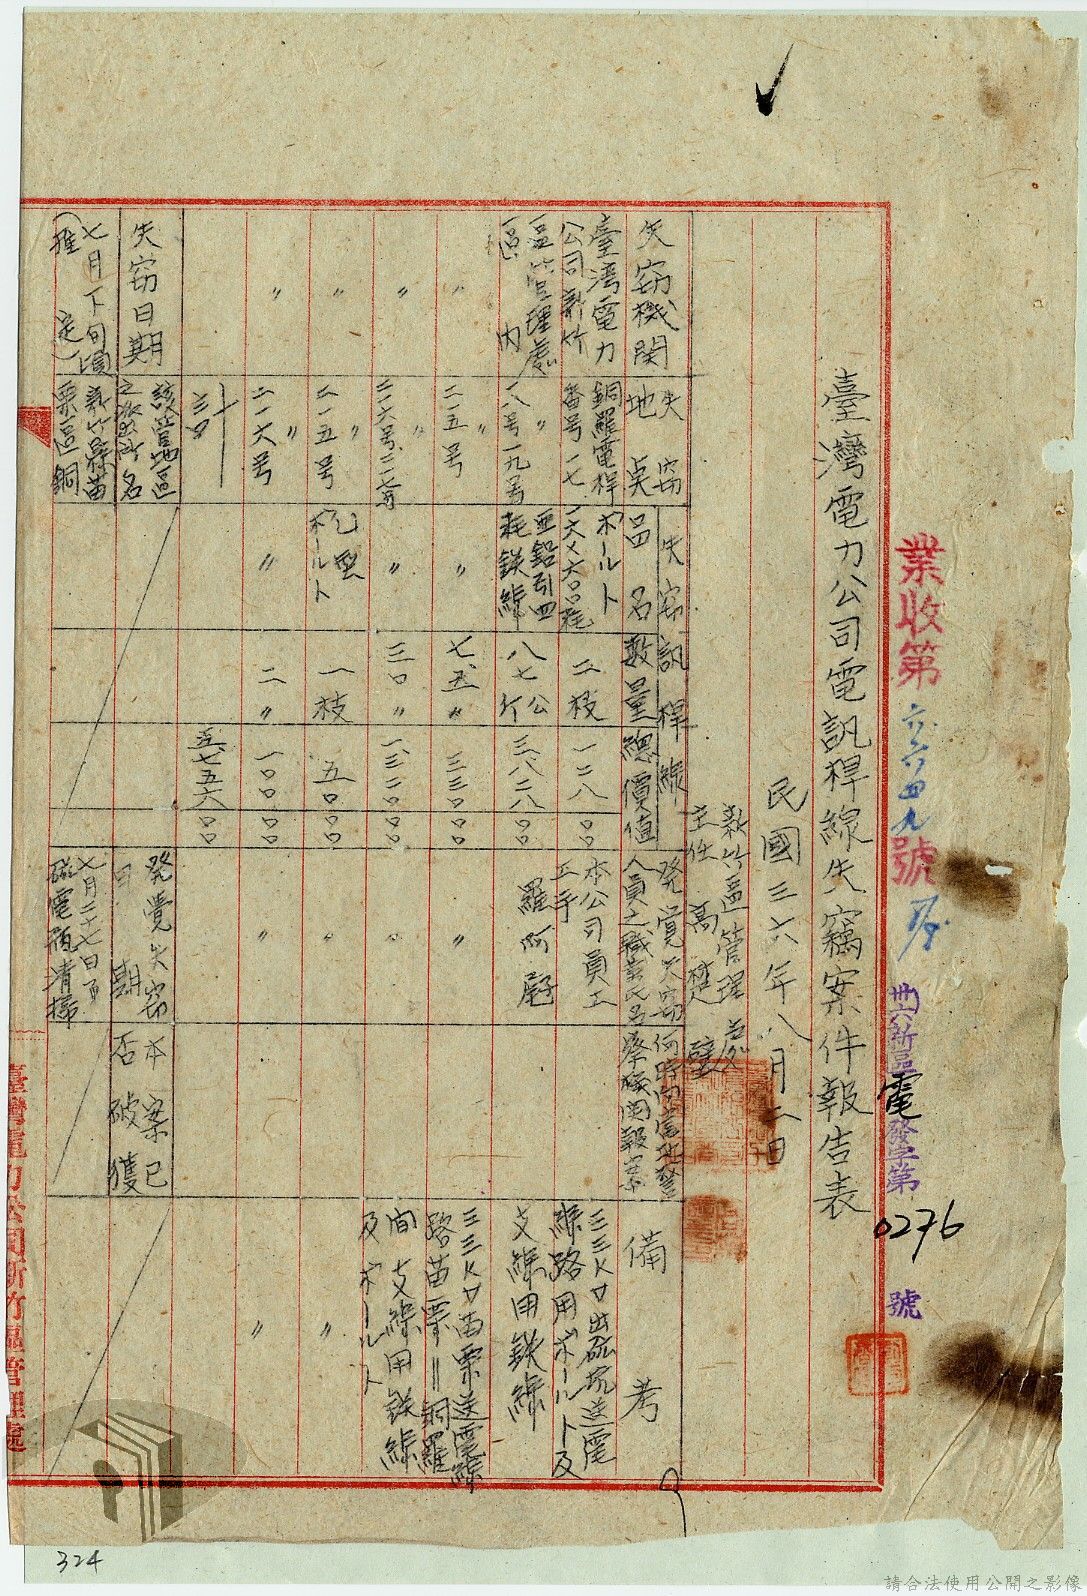 業收第六六四九號
卅六新區電發字第0276號
臺灣電力公司電訊桿線失竊案件報告表
民國三六年八月二日
新竹區管理處
主任 高楚
失窃機関
失窃地点
失窃訊桿線
品名
数量
總價值
発覚失窃人員之職業氏名
何時向當地警察機関報案
備考
臺湾電力公司新竹區管理處區内
銅羅電桿番号一七
ボールト
二枝
一二八00
本公司員工
工手
羅阿
三三KV出磺坑送電線路用ボールト及支線用鉄線
〃
一八号一九号
亜鉛引四粍鉄線
八七公斤
三、八二八00
〃
〃
二一五号
〃
七、五〃
三三000
〃
三三KV苗栗送電線路苗栗=銅羅間支線用鉄線及ボールト
〃
〃
〃
三0〃
一、三二000
〃
〃
〃
二一五号
ボールト
一枝
五000
〃
〃
〃
〃
二一六号
〃
二〃
一0000
〃
〃
五、七五六00
失窃日期
該當地區之派出所名
発覚失窃日期
本案已否破獲
七月下旬頃
(推定)
新竹縣苗栗區銅
七月二十七日
臺灣電力公司新竹區管理處
324
請合法使用公開之影像